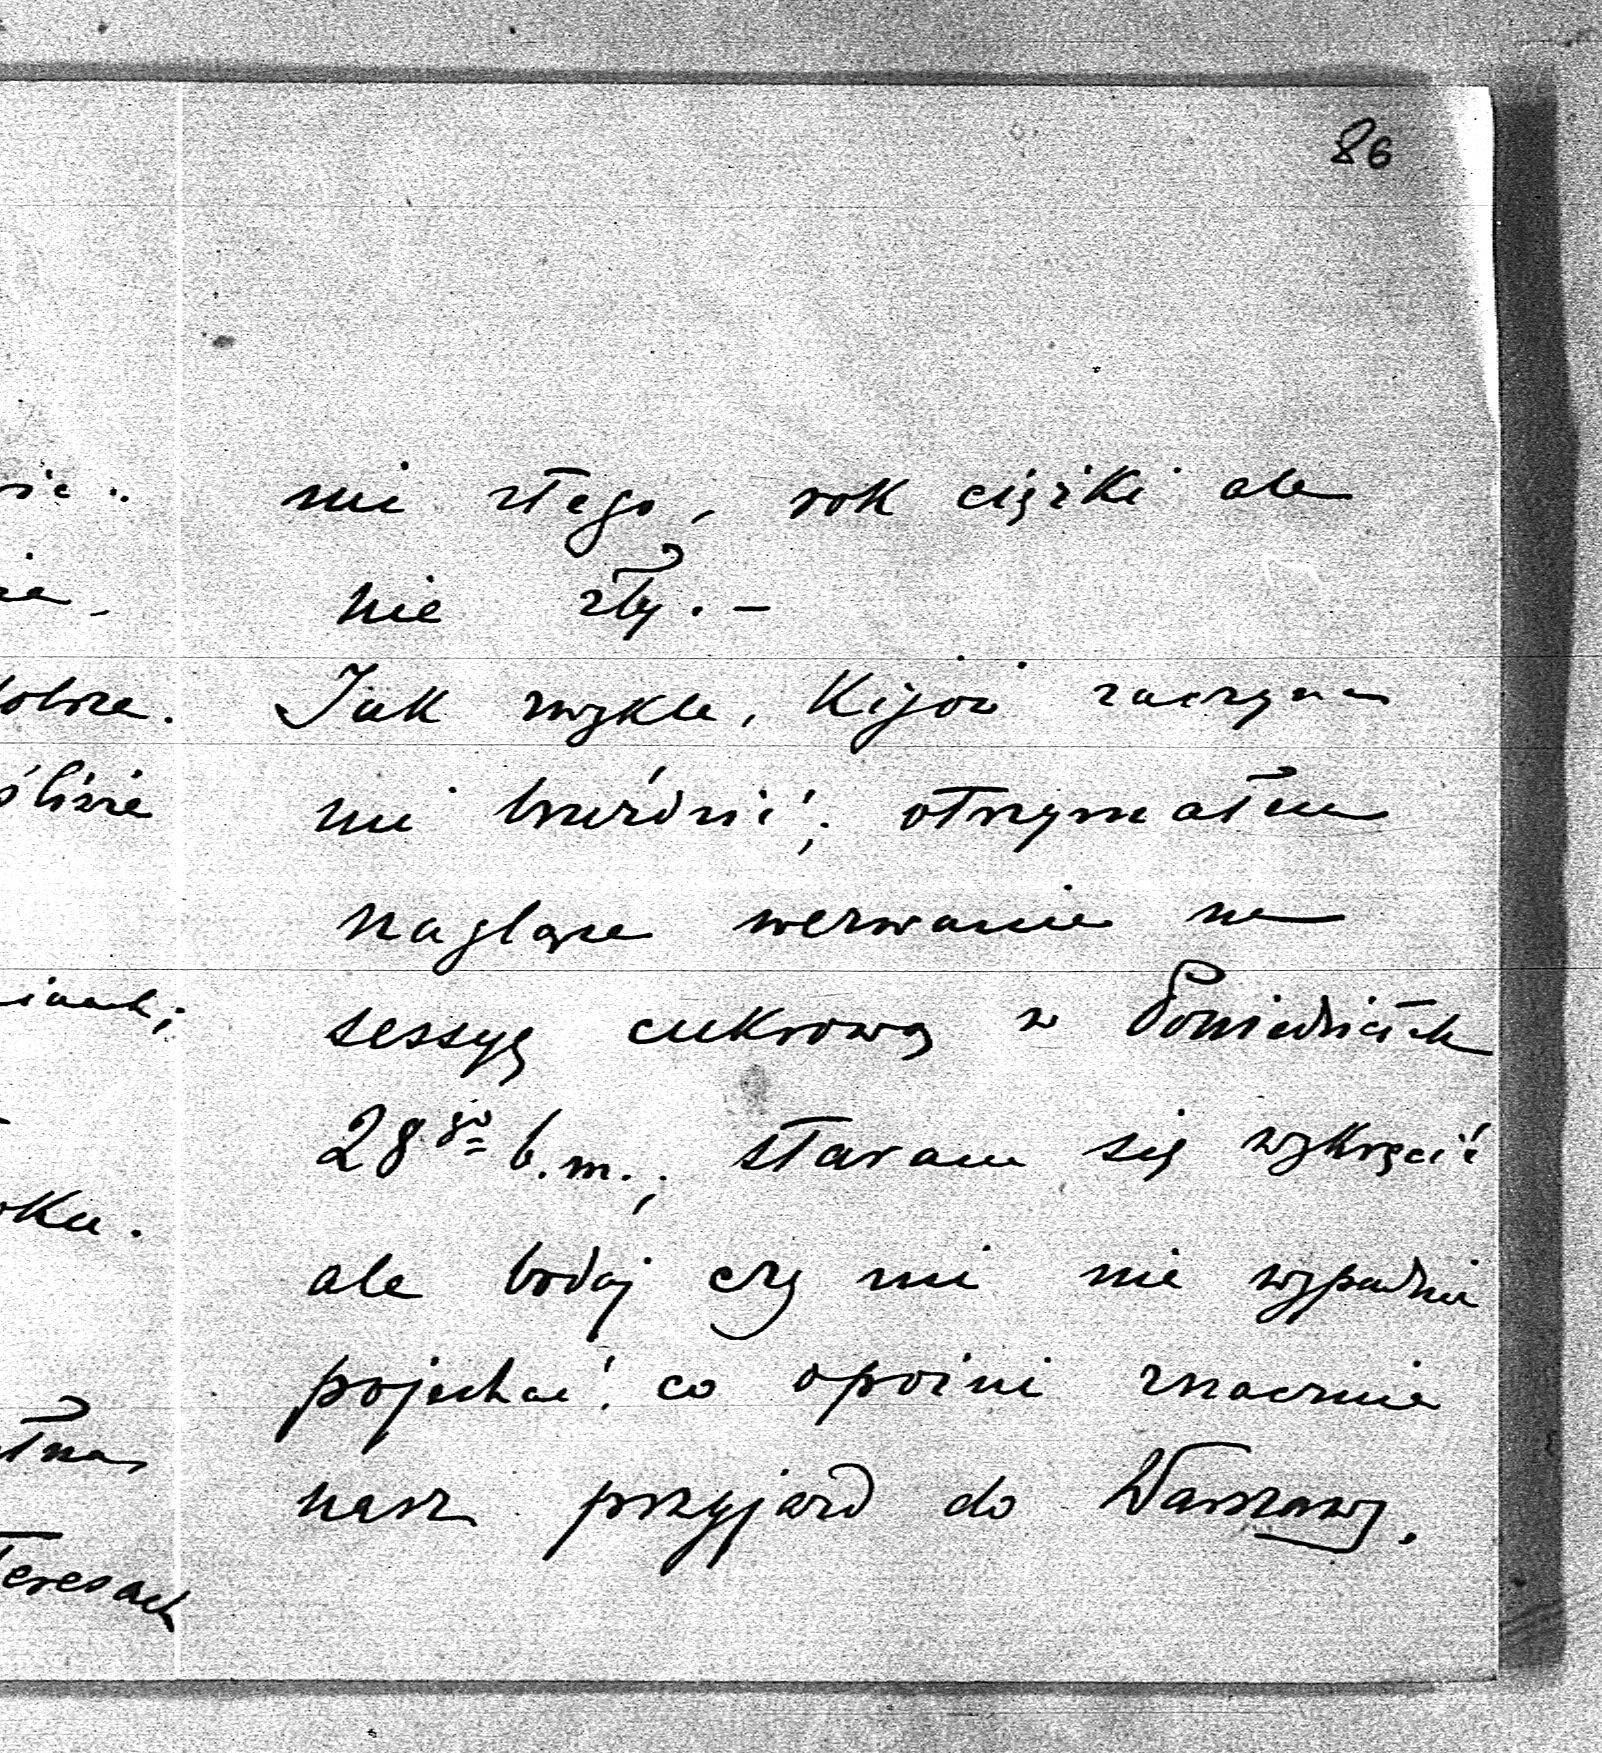 86
nic złego, rok ciężki ale
nie zły. –
Jak zwykle, Kijów zaczyna
mi bruździć; otrzymałem
naglące wezwanie na
sessyę cukrową w Poniedziałek
28go b.m.; staram się wykręcić
ale bodaj czy mi nie wypadnie
pojechać! co opóźni znacznie
nasz przyjazd do Warszawy.